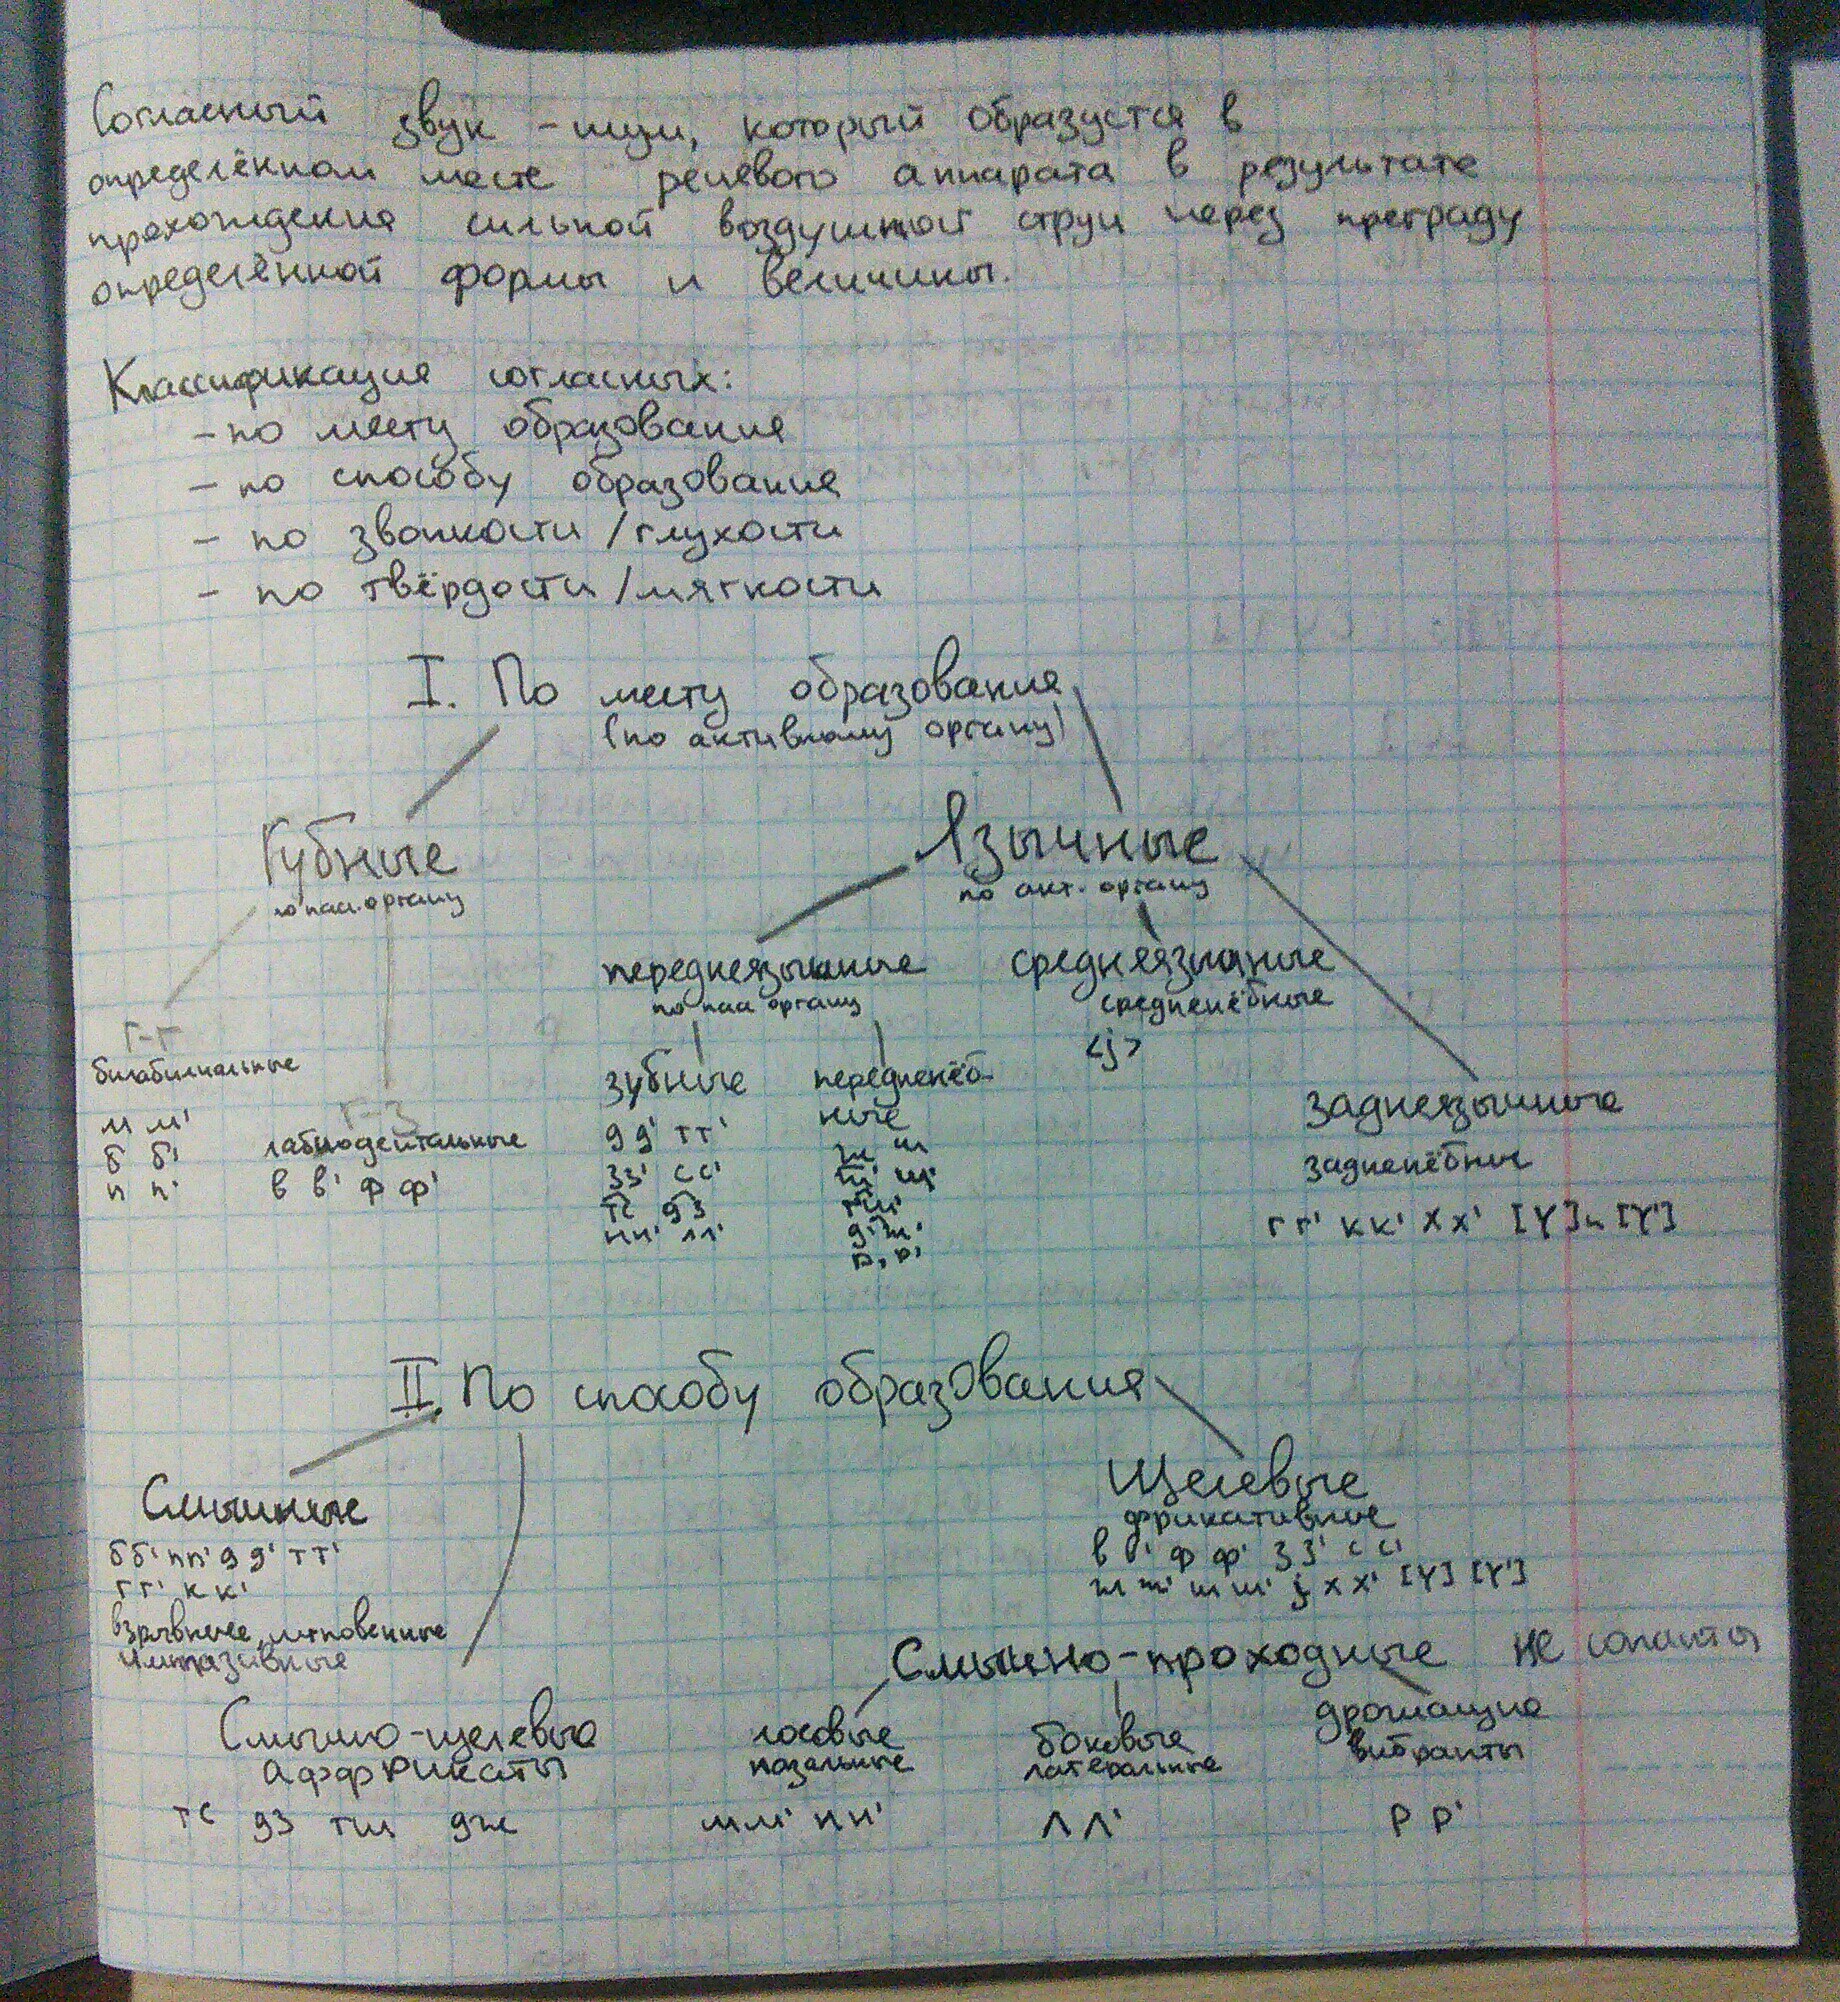 Согласный звук – шум, который образуется в
определённом месте речевого аппарата в результате
прохождения сильной воздушной струи через преграду
определённой формы и величины.
Классификация согласных:
– по месту образования
– по способу образования
– по звонкости / глухости
– по твёрдости / мягкости
I. По месту образования
(по активному органу)
Губные
по пасс. органу
Язычные
по акт. органу
переднеязычные
по пасс органу
среднеязычные
средненёбные
<j>
Г-Г
билабиальные
м м'
б б'
п п'
Г-З
лабиодентальные
в в' ф ф'
зубные
д д' т т'
з з' с с'
тс дз
н н' л л'
передненёб-
ные
ж ш
ж' ш'
тш'
д'ж'
р, р'
заднеязычные
задненёбные
г г' к к' х х' [γ] и [γ']
II. По способу образования
Смычные
б б' п п' д д' т т'
г г' к к'
взрывные, мгновенные
Щелевые
фрикативные
в в' ф ф' з з' с с'
ж ж' ш ш' j х х' [γ] [γ']
Смычно-щелевые
аффрикаты
тс дз тш дж
Смычно-проходные не сонанты
носовые
назальные
м м' н н'
боковые
латеральные
л л'
дрожащие
вибранты
р р'